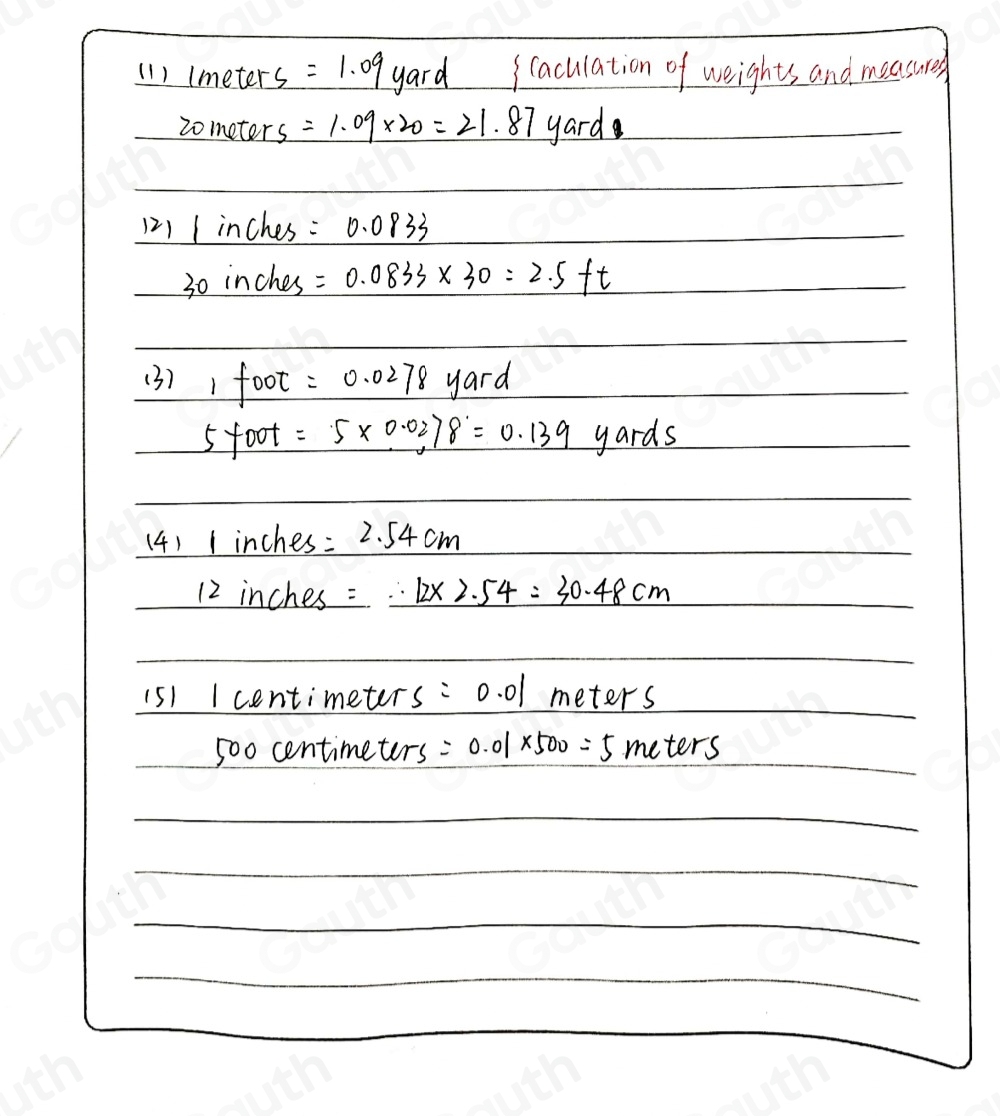 (1) 1meters = 1.09 yard { Caculation of weights and measures
20 meters = 1.09 × 20 = 21.87 yard
(2) 1 inches = 0.0833
30 inches = 0.0833 × 30 = 2.5 ft
(3) 1 foot = 0.0278 yard
5 foot = 5 × 0.0278 = 0.139 yards
(4) 1 inches = 2.54 cm
12 inches = 12 × 2.54 = 30.48 cm
(5) 1 centimeters = 0.01 meters
500 centimeters = 0.01 × 500 = 5 meters
Gauth